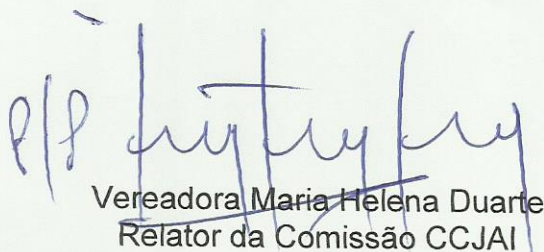 P/P
Vereadora Maria Helena Duarte
Relator da Comissão CCJAI